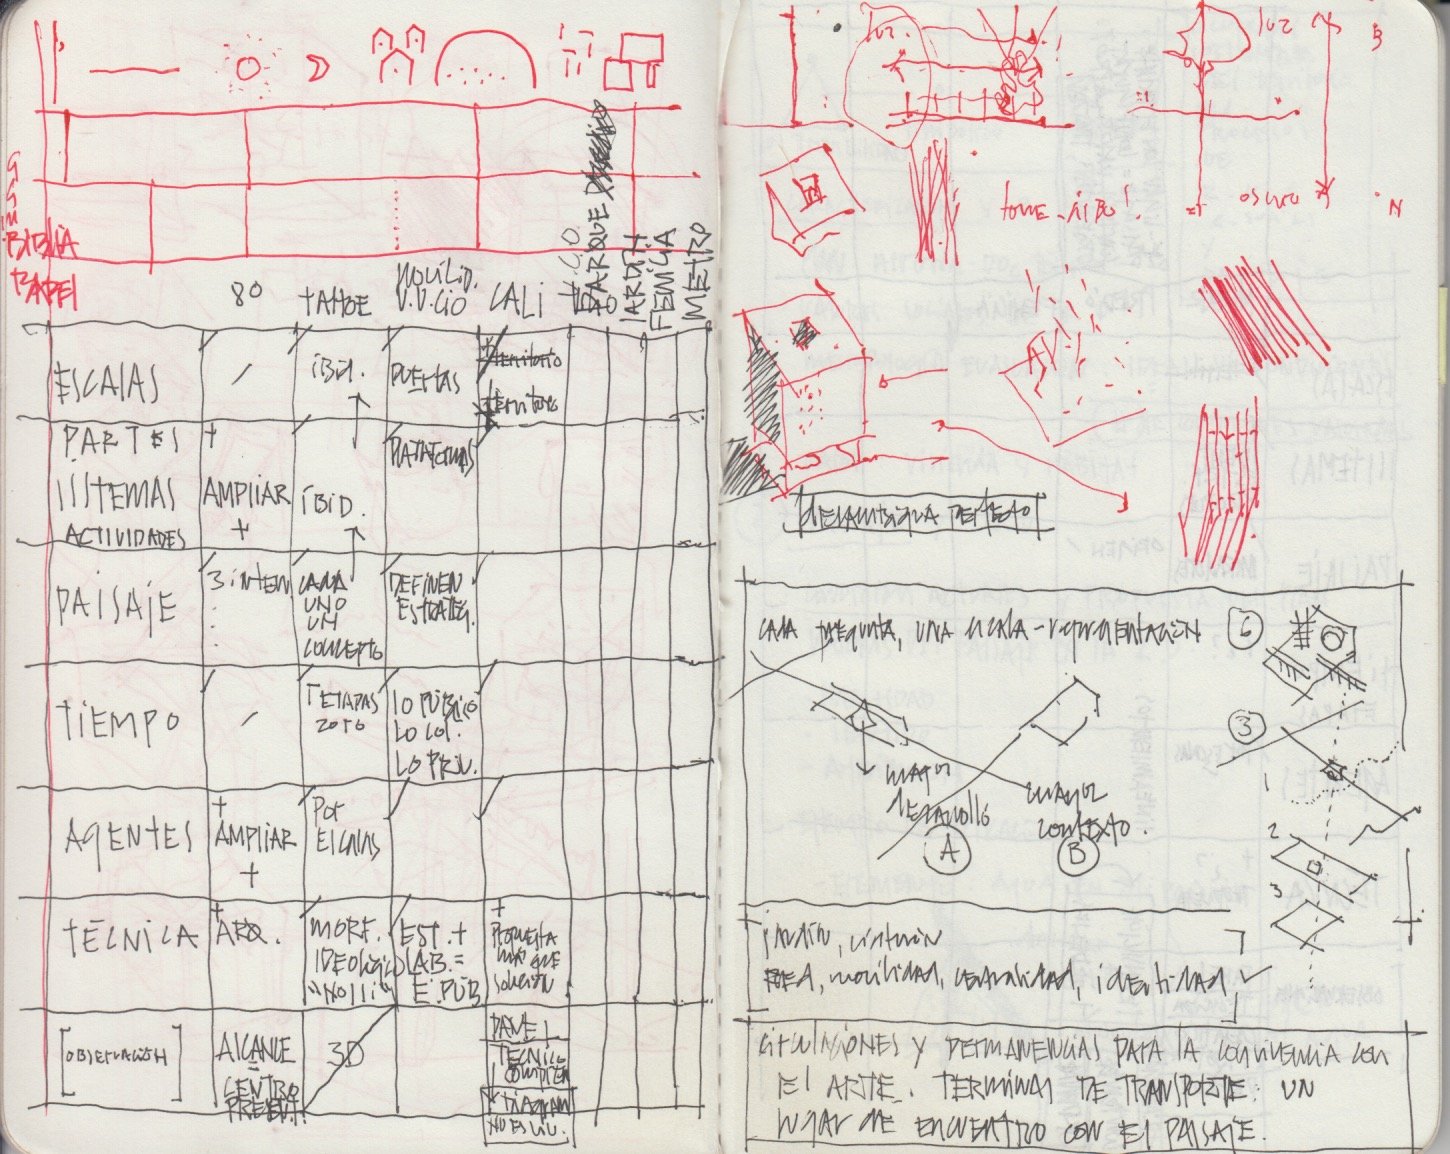 BIBLIA
PAPEL
80
TAHOE
V.VICIO
CALI
PARQUE
JARDÍN
FENICIA
METRO
ESCALAS
/
IBID.
PUERTAS
territorio
territorio
PARTES
SISTEMAS
ACTIVIDADES
+
AMPLIAR
+
IBID.
PLATAFORMAS
PAISAJE
3 inten
CADA
UNO
UN
CONCEPTO
DEFINEN
ESTRATEG.
TIEMPO
/
ETAPAS
LO PÚBLICO
LO COL.
LO PRIV.
AGENTES
+
AMPLIAR
+
POR
ESCALAS
TÉCNICA
+
ARQ.
MORF.
IDEOLÓGICO
"NOLLI"
EST. +
LAB. =
E. PÚB
+
PROPUESTA
MÁS QUE
SOLUCIÓN
[OBSERVACIÓN]
ALCANCE
=
CENTRO
PRESENT.
3D
PANEL
TÉCNICO
DIAGRAMA
NO ES
luz
luz
B
oscuro
N
CADA PREGUNTA, UNA ESCALA-REPRESENTACIÓN
6
3
1
2
3
MAYOR
DESARROLLO
A
MAYOR
CONTEXTO.
B
jardín,
RED, movilidad, centralidad, identidad,
CIRCULACIONES Y PERMANENCIAS PARA LA CONVIVENCIA CON
EL ARTE. TERMINAL DE TRANSPORTE: UN
LUGAR DE ENCUENTRO CON EL PAISAJE.